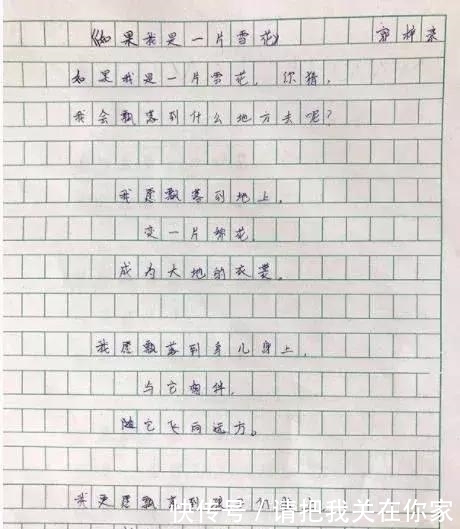 《如果我是一片雪花》
如果我是一片雪花，你猜，
我会飘落到什么地方去呢？
我愿飘落到地上，
变一片棉花，
成为大地的衣裳。
我愿飘落到鸟儿身上，
与它相伴，
随它飞向远方。
我更愿飘落到
快传号／请把我关在你家